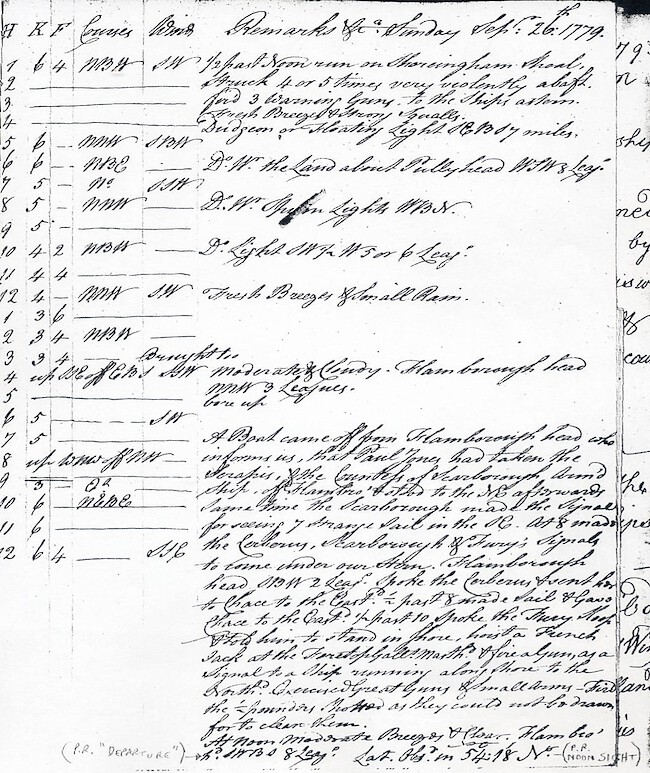 H K F Courses Winds Remarks &ca Sunday Sepr. 26th 1779.
1 6 4 NBW SW 1/2 past Noon run on Sheringham Shoal,
2 Struck 4 or 5 times very violently abaft.
3 fird 3 Warning Guns to the Ships astern.
4 Fresh Breezes & Strong Squalls.
Dudgeon or Floating Light SEBS 7 miles.
5 6 NNW SBW
6 6 NBE Do. Wr. the Land about Pullyhead WSW 8 Leags.
7 5 No SSW
8 5 NNW Do. Wr. Spurn Lights WBN.
9 5
10 4 2 NBW Do. Light SW 1/2 W 5 or 6 Leags.
11 4 4
12 4 NNW SW Fresh Breezes & Small Rain.
1 3 6
2 3 4 NBW
3 3 4 Brought to
4 up SE off EBS SBW Moderate & Cloudy. Flamborough head
5 NNW 3 Leagues.
bore up
6 5 SW
7 5 A Boat came off from Flamborough head who
8 up WNW off NW informs us, that Paul Jones had taken the
Serapis, & the Countess of Scarborough Arm'd
9 3 Do Ship, off Flambro' & stood to the NE afterwards
10 6 NEBE Same time the Scarborough made the Signal
11 6 for seeing 7 Strange Sail in the SE. At 8 made
12 6 4 SSE the Cerberus, Scarborough & Fury's Signals
to come under our Stern. Flamborough
head SBW 2 Leags. Spoke the Cerberus & sent her
to Chace to the Eastd. 1/2 past 8 made Sail & Gave
Chace to the Eastd. 1/2 past 10 Spoke the Fury Sloop
& told him to stand in shore, hoist a French
Jack at the Foretopgallt Masthd. & fire a Gun, as a
Signal to a Ship running along shore to the
Northd. Exercised Great Guns & Small Arms - Fired
the 1/2 pounders Shotted as they could not be drawn
for to clean them.
At Noon Moderate Breezes & Clear. Flambro'
hd. SWBS 8 Leags. Lat. Obsd. in 54 18 No.
(P.R. "DEPARTURE")
(P.R. NOON SIGHT)